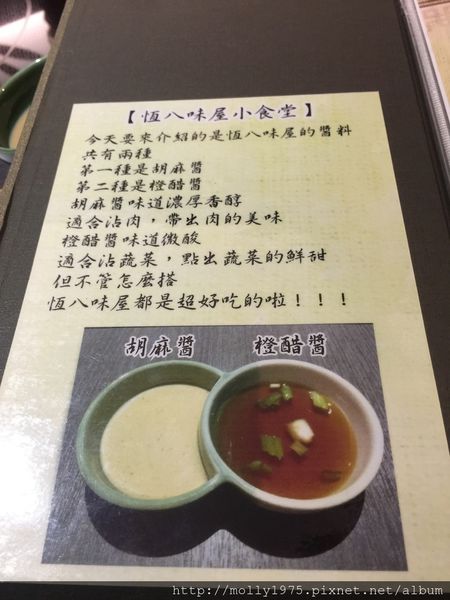 【恆八味屋小食堂】
今天要來介紹的是恆八味屋的醬料
共有兩種
第一種是胡麻醬
第二種是橙醋醬
胡麻醬味道濃厚香醇
適合沾肉，帶出肉的美味
橙醋醬味道微酸
適合沾蔬菜，點出蔬菜的鮮甜
但不管怎麼搭
恆八味屋都是超好吃的啦！！！
胡麻醬 橙醋醬
http://molly1975.pixnet.net/album